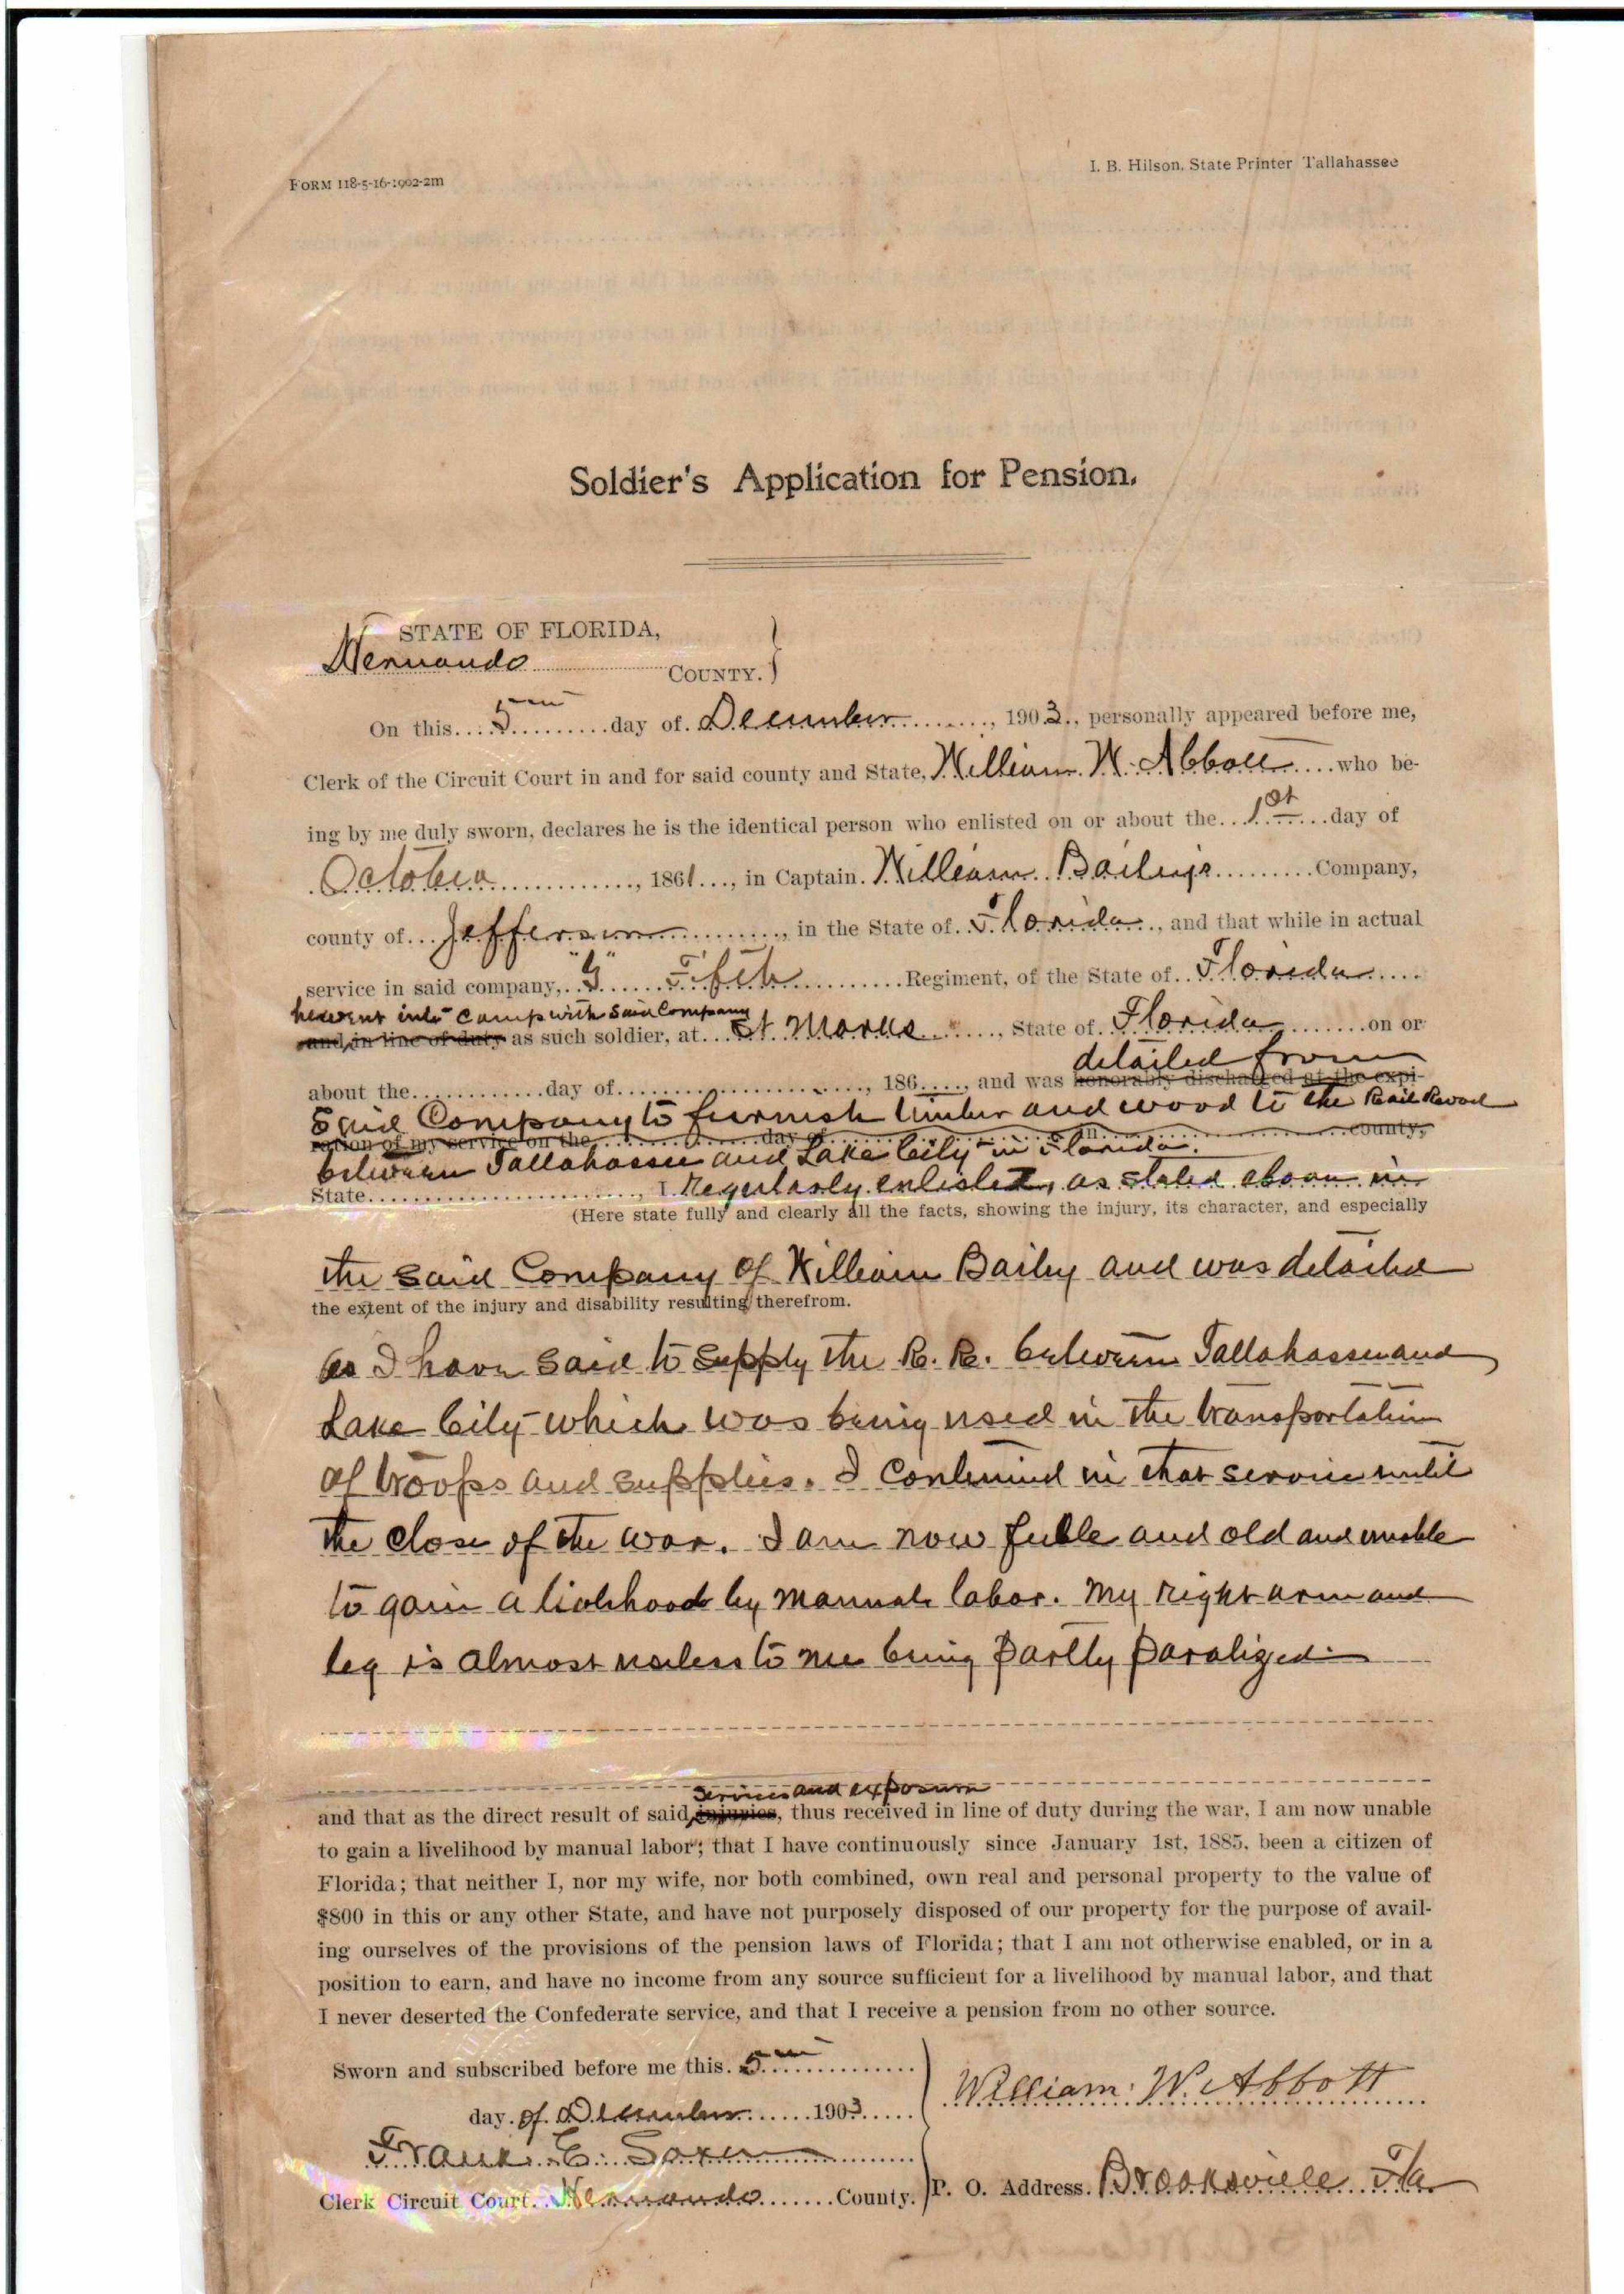 FORM 118-5-16-1902-2m
I. B. Hilson, State Printer Tallahassee
Soldier's Application for Pension.
STATE OF FLORIDA,
Hernando COUNTY.
On this 5th day of December, 1903, personally appeared before me,
Clerk of the Circuit Court in and for said county and State, William W. Abbott who be-
ing by me duly sworn, declares he is the identical person who enlisted on or about the 1st day of
October, 1861, in Captain William Bailey's Company,
county of Jefferson, in the State of Florida, and that while in actual
service in said company, "G" Fifth Regiment, of the State of Florida
he went into camp with said Company
and in line of duty as such soldier, at St Marks, State of Florida on or
detailed from
about the day of, 186, and was honorably discharged at the expi-
Said Company to furnish timber and wood to the Rail Road
ration of my service on the day of in county,
between Tallahassee and Lake City in Florida.
State, I regularly enlisted, as stated above in
(Here state fully and clearly all the facts, showing the injury, its character, and especially
the said Company of William Bailey and was detailed
the extent of the injury and disability resulting therefrom.
as I have said to supply the R. R. between Tallahassee and
Lake City which was being used in the transportation
of troops and supplies. I continued in that service until
the close of the war. I am now feeble and old and unable
to gain a livlihood by manual labor. My right arm and
leg is almost useless to me being partly paralized
services and exposure
and that as the direct result of said injuries, thus received in line of duty during the war, I am now unable
to gain a livelihood by manual labor; that I have continuously since January 1st, 1885, been a citizen of
Florida; that neither I, nor my wife, nor both combined, own real and personal property to the value of
$800 in this or any other State, and have not purposely disposed of our property for the purpose of avail-
ing ourselves of the provisions of the pension laws of Florida; that I am not otherwise enabled, or in a
position to earn, and have no income from any source sufficient for a livelihood by manual labor, and that
I never deserted the Confederate service, and that I receive a pension from no other source.
Sworn and subscribed before me this 5th
day of December 1903
William W. Abbott
Frank E. Saxon
Clerk Circuit Court Hernando County.
P. O. Address. Brooksville Fla